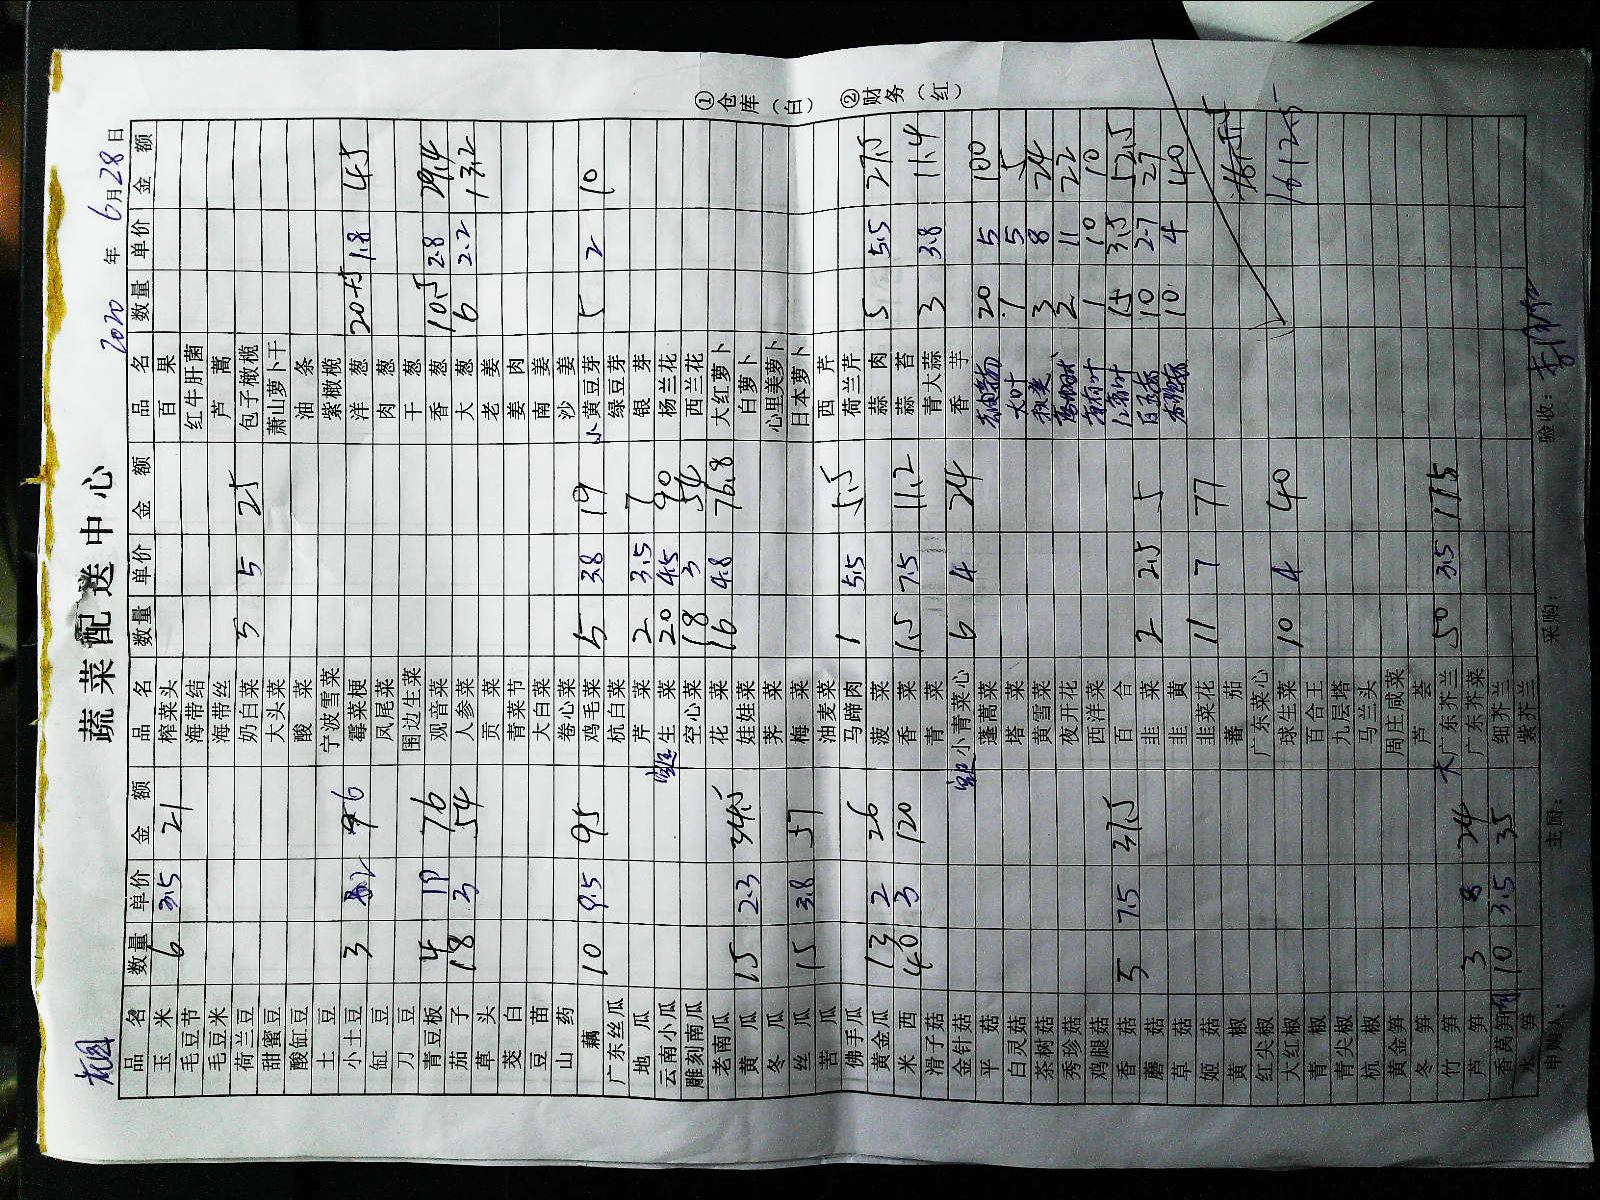 蔬菜配送中心
2020 年 6月28日
品名 数量 单价 金额 品名 数量 单价 金额 品名 数量 单价 金额
玉米 6 3.5 21 榨菜头 百果
毛豆节 海带结 红牛肝菌
毛豆米 海带丝 芦蒿
荷兰豆 奶白菜 5 5 25 包子橄榄
甜蜜豆 大头菜 萧山萝卜干
酸缸豆 酸菜 油条
土豆 宁波雪菜 紫橄榄
小土豆 3 霉菜梗 洋葱 1.8 45
缸豆 凤尾菜 肉葱
刀豆 围边生菜 干葱
青豆板 4 19 76 观音菜 香葱 10.5 2.8 29.4
茄子 18 3 54 人参菜 大葱 6 2.2 13.2
草头 贡菜 老姜
茭白 青菜节 姜肉
豆苗 大白菜 南姜
山药 卷心菜 沙姜
藕 10 9.5 95 鸡毛菜 5 3.8 19 小黄豆芽 5 2 10
广东丝瓜 杭白菜 绿豆芽
地瓜 芹菜 2 3.5 7 银芽
云南小瓜 生菜 20 4.5 90 杨兰花
雕刻南瓜 空心菜 18 3 54 西兰花
老南瓜 花菜 16 4.8 76.8 大红萝卜
黄瓜 15 2.3 34.5 娃娃菜 白萝卜
冬瓜 荠菜 心里美萝卜
丝瓜 15 3.8 57 梅菜 日本萝卜
苦瓜 油麦菜 西芹
佛手瓜 马蹄肉 1 5.5 5.5 荷兰芹
黄金瓜 13 2 26 菠菜 蒜肉 5 5.5 27.5
米西 40 3 120 香菜 1.5 7.5 11.2 蒜苔
滑子菇 青菜 青大蒜 3 3.8 11.4
金针菇 小青菜心 6 4 24 香芋
平菇 蓬蒿菜 20 5 100
白灵菇 塔菜 1 5 5
茶树菇 黄雪菜 3 8 24
秀珍菇 夜开花 2 11 22
鸡腿菇 西洋菜 1 10 10
香菇 5 7.5 37.5 百合 15 3.5 52.5
蘑菇 韭菜 2 2.5 5 10 2.7 27
草菇 韭黄 10 4 40
姬菇 韭菜花 11 7 77
黄椒 蕃茄
红尖椒 广东菜心
大红椒 球生菜 10 4 40 1612.5
青椒 百合王
青尖椒 九层塔
杭椒 马兰头
黄金笋 周庄咸菜
冬笋 芦荟
竹笋 大广东芥兰 50 3.5 175
芦笋 3 8 24 广东芥菜
香莴笋 10 3.5 35 细芥兰
水笋 紫芥兰
申购人： 主厨： 采购： 验收：
①仓库（白） ②财务（红）